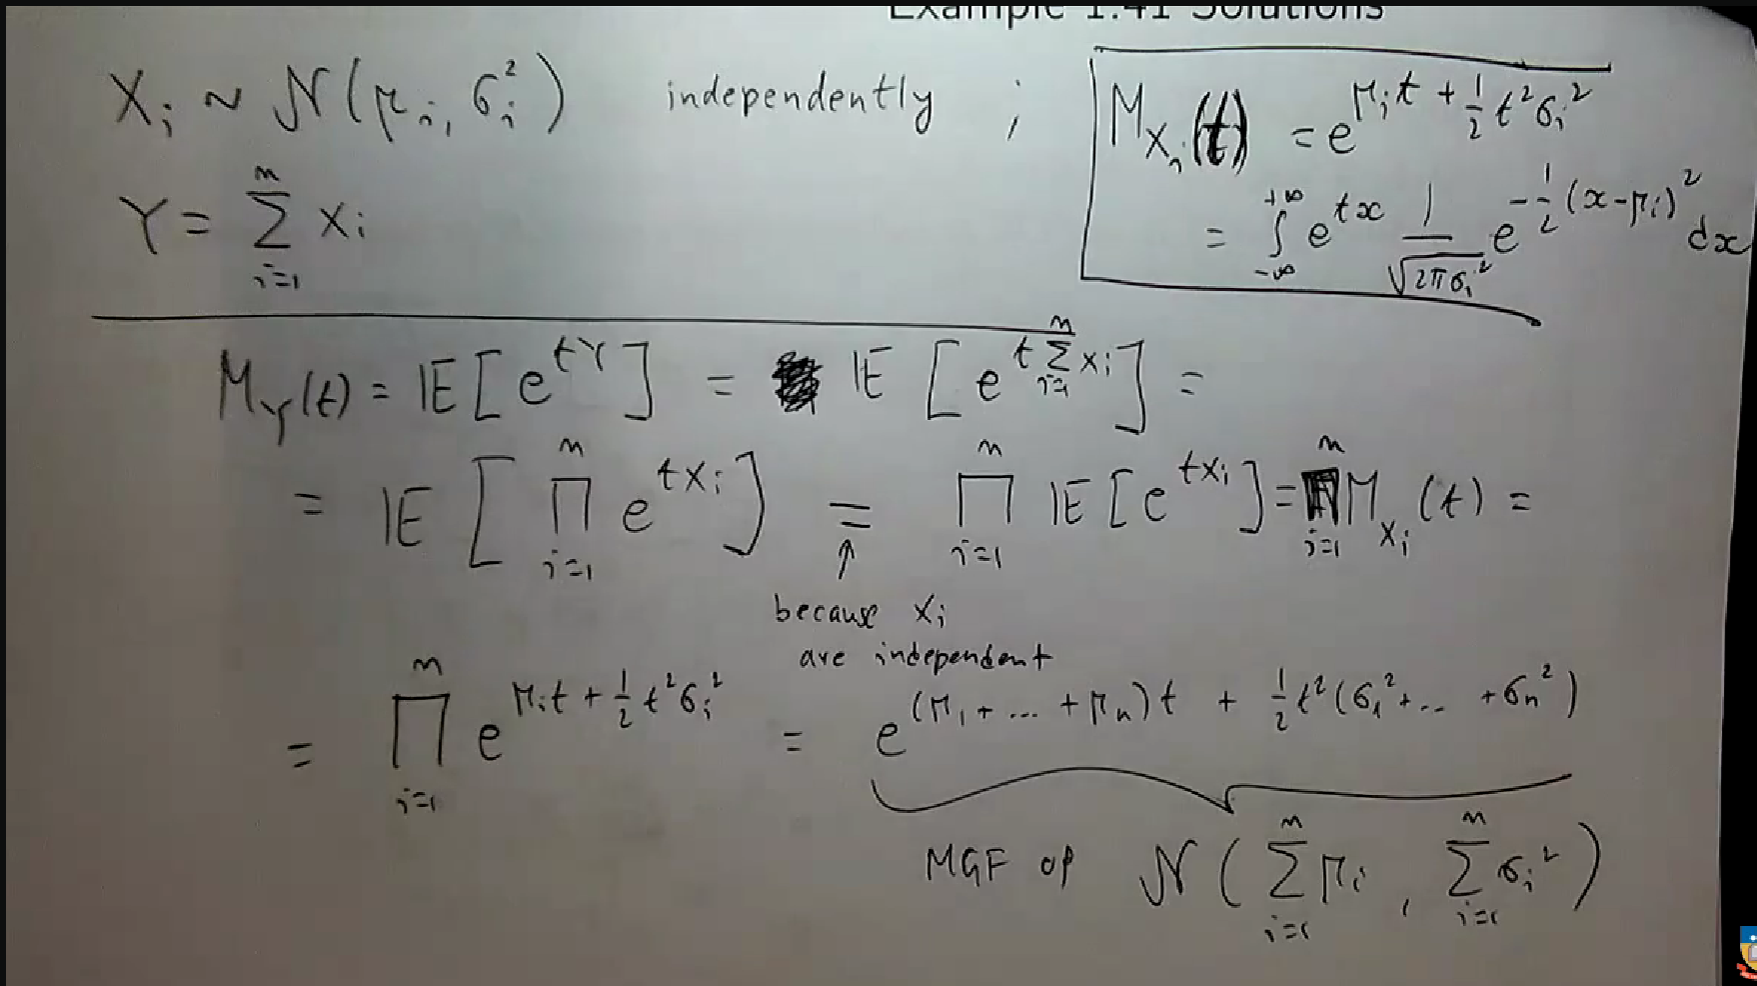 Example 1.41 Solutions
X_i ~ N(μ_i, σ_i^2) independently ;
Y = ∑_{i=1}^{n} X_i
M_{X_i}(t) = e^{μ_i t + 1/2 t^2 σ_i^2}
= ∫_{-∞}^{+∞} e^{tx} 1/√(2πσ_i^2) e^{-1/2 (x-μ_i)^2} dx
M_Y(t) = E[e^{tY}] = E[e^{t ∑_{i=1}^{n} X_i}] =
= E[∏_{i=1}^{n} e^{tX_i}] = ∏_{i=1}^{n} E[e^{tX_i}] = ∏_{i=1}^{n} M_{X_i}(t) =
↑
because X_i
are independent
= ∏_{i=1}^{n} e^{μ_i t + 1/2 t^2 σ_i^2} = e^{(μ_1 + ... + μ_n)t + 1/2 t^2 (σ_1^2 + .. + σ_n^2)}
MGF of N(∑_{i=1}^{n} μ_i, ∑_{i=1}^{n} σ_i^2)